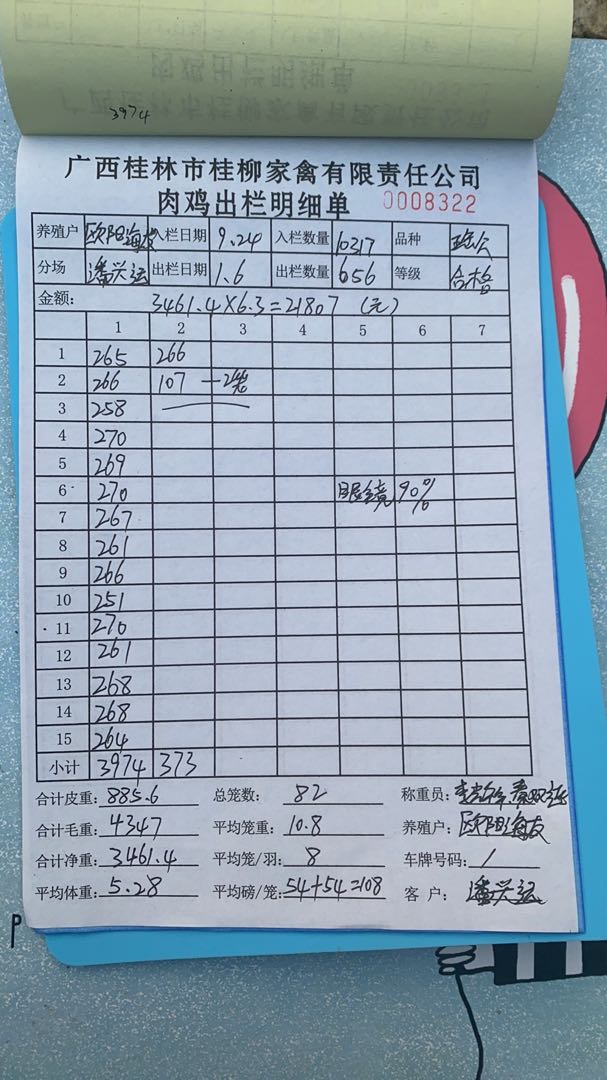 3974
广西桂林市桂柳家禽有限责任公司
肉鸡出栏明细单 0008322
养殖户 欧阳海友 入栏日期 9.24 入栏数量 10317 品种
分场 潘兴运 出栏日期 1.6 出栏数量 656 等级 合格
金额: 3461.4×6.3=21807 (元)
1 2 3 4 5 6 7
1 265 266
2 266 107 一2笼
3 258
4 270
5 269
6 270 眼镜90%
7 267
8 261
9 266
10 251
11 270
12 261
13 268
14 268
15 264
小计 3974 373
合计皮重: 885.6 总笼数: 82 称重员:
合计毛重: 4347 平均笼重: 10.8 养殖户: 欧阳海友
合计净重: 3461.4 平均笼/羽: 8 车牌号码: /
平均体重: 5.28 平均磅/笼: 54+54=108 客户: 潘兴运
P